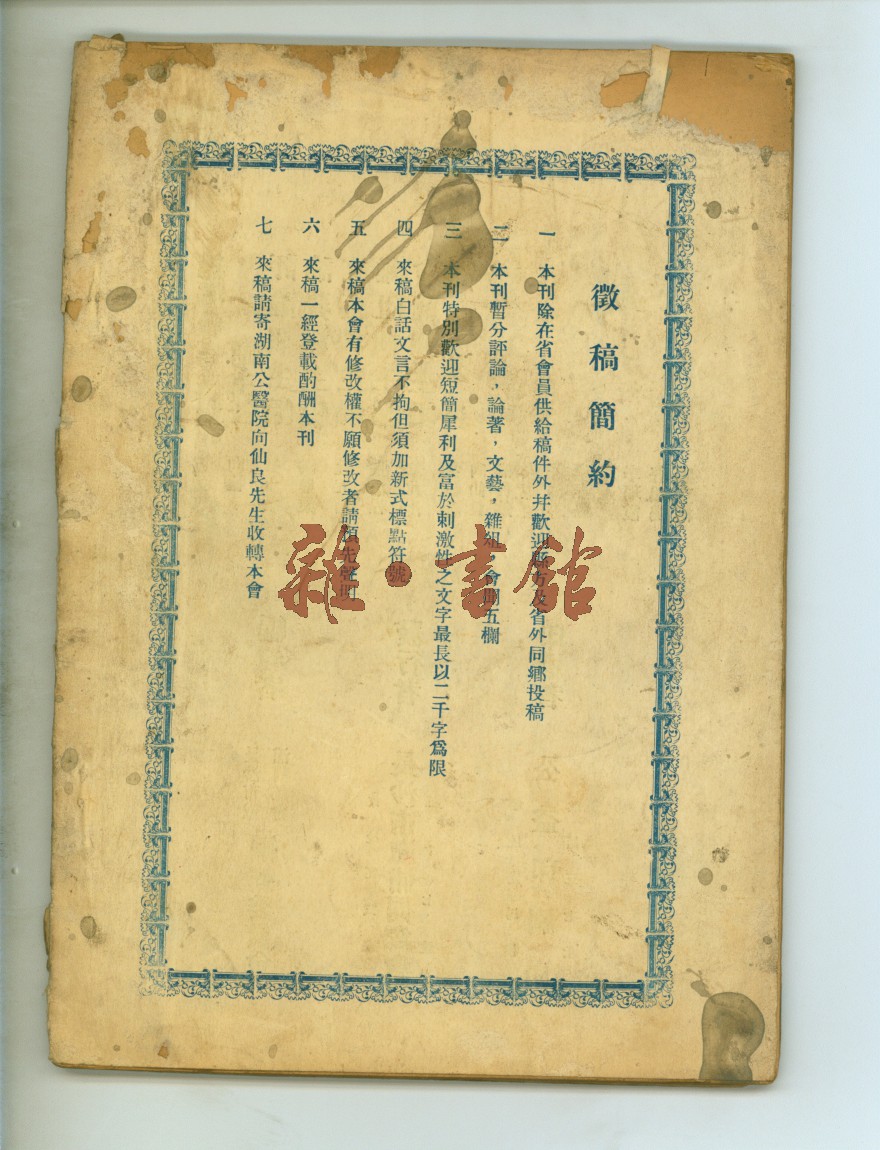 徵稿簡約
一 本刊除在省會員供給稿件外并歡迎縣方及省外同鄉投稿
二 本刊暫分評論，論著，文藝，雜俎，會聞五欄
三 本刊特別歡迎短簡犀利及富於刺激性之文字最長以二千字爲限
四 來稿白話文言不拘但須加新式標點符號
五 來稿本會有修改權不願修改者請預先聲明
六 來稿一經登載酌酬本刊
七 來稿請寄湖南公醫院向仙良先生收轉本會
雜·書館